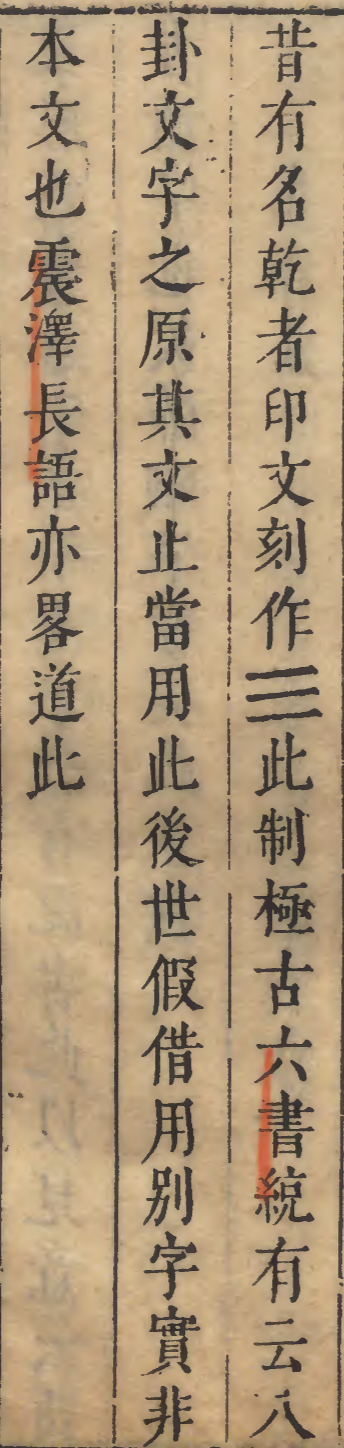 昔有名乾者印文刻作☰此制極古六書統有云八
卦文字之原其文止當用此後世假借用别字實非
本文也震澤長語亦畧道此